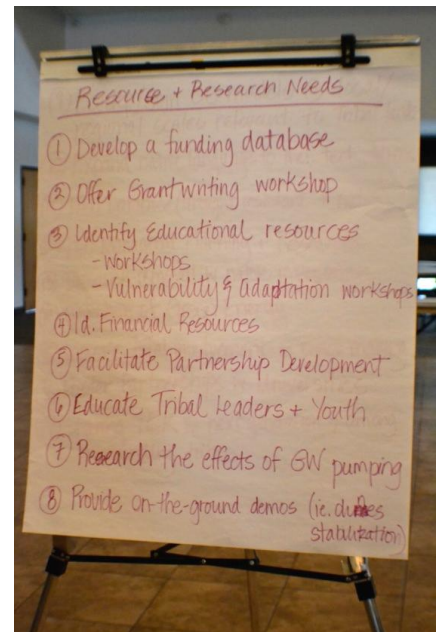 Resource + Research Needs
① Develop a funding database
② Offer Grantwriting workshop
③ Identify Educational resources
- Workshops
- Vulnerability & adaptation workshops
④ Id. Financial Resources
⑤ Facilitate Partnership Development
⑥ Educate Tribal Leaders + Youth
⑦ Research the effects of GW pumping
⑧ Provide on-the-ground demos (ie. dunes
stabilization)